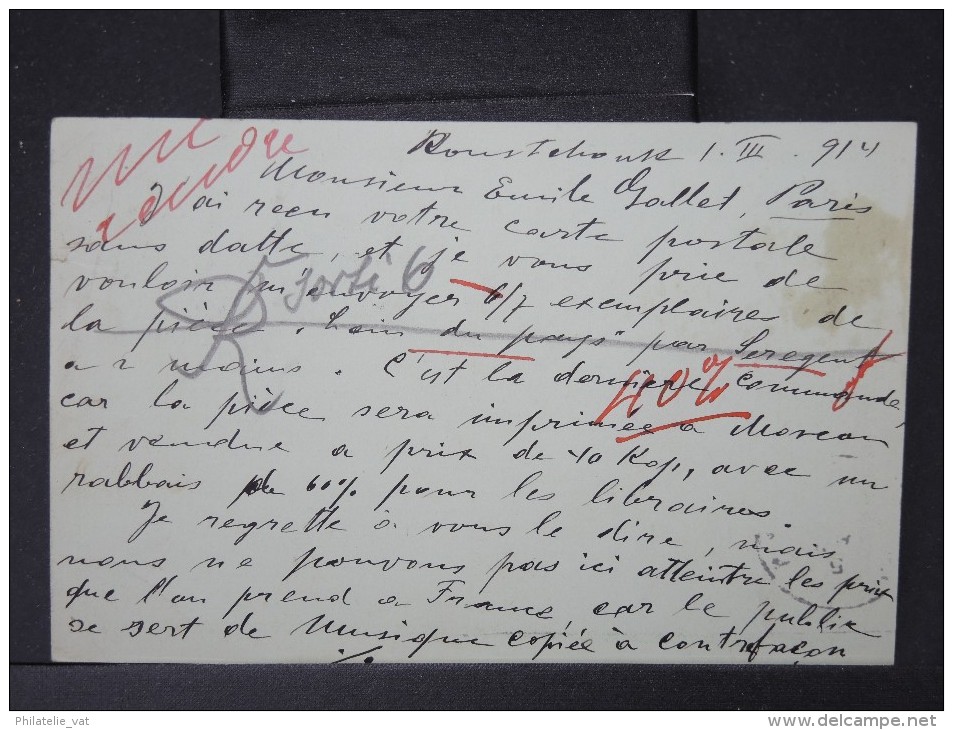 Roustchouk 1. III. 914
Monsieur Emile Gallet, Paris
J'ai reçu votre carte postale
sans datte, et je vous prie de
vouloir m'envoyer 6/7 exemplaires de
la pièce "Loin du pays" par Seregent
a 2 mains. C'est la dernière commande,
40%
car la pièce sera imprimée a Moscou
et vendue a prix de 40 Kop, avec un
rabbais de 60% pour les libraires
Je regrette à vous le dire, mais
nous ne pouvons pas ici atteintre les prix
que l'on prend a France, car le public
se sert de Musique copiée à contrefaçon
./.
sorti 6
Philatelie_vat
www.delcampe.net